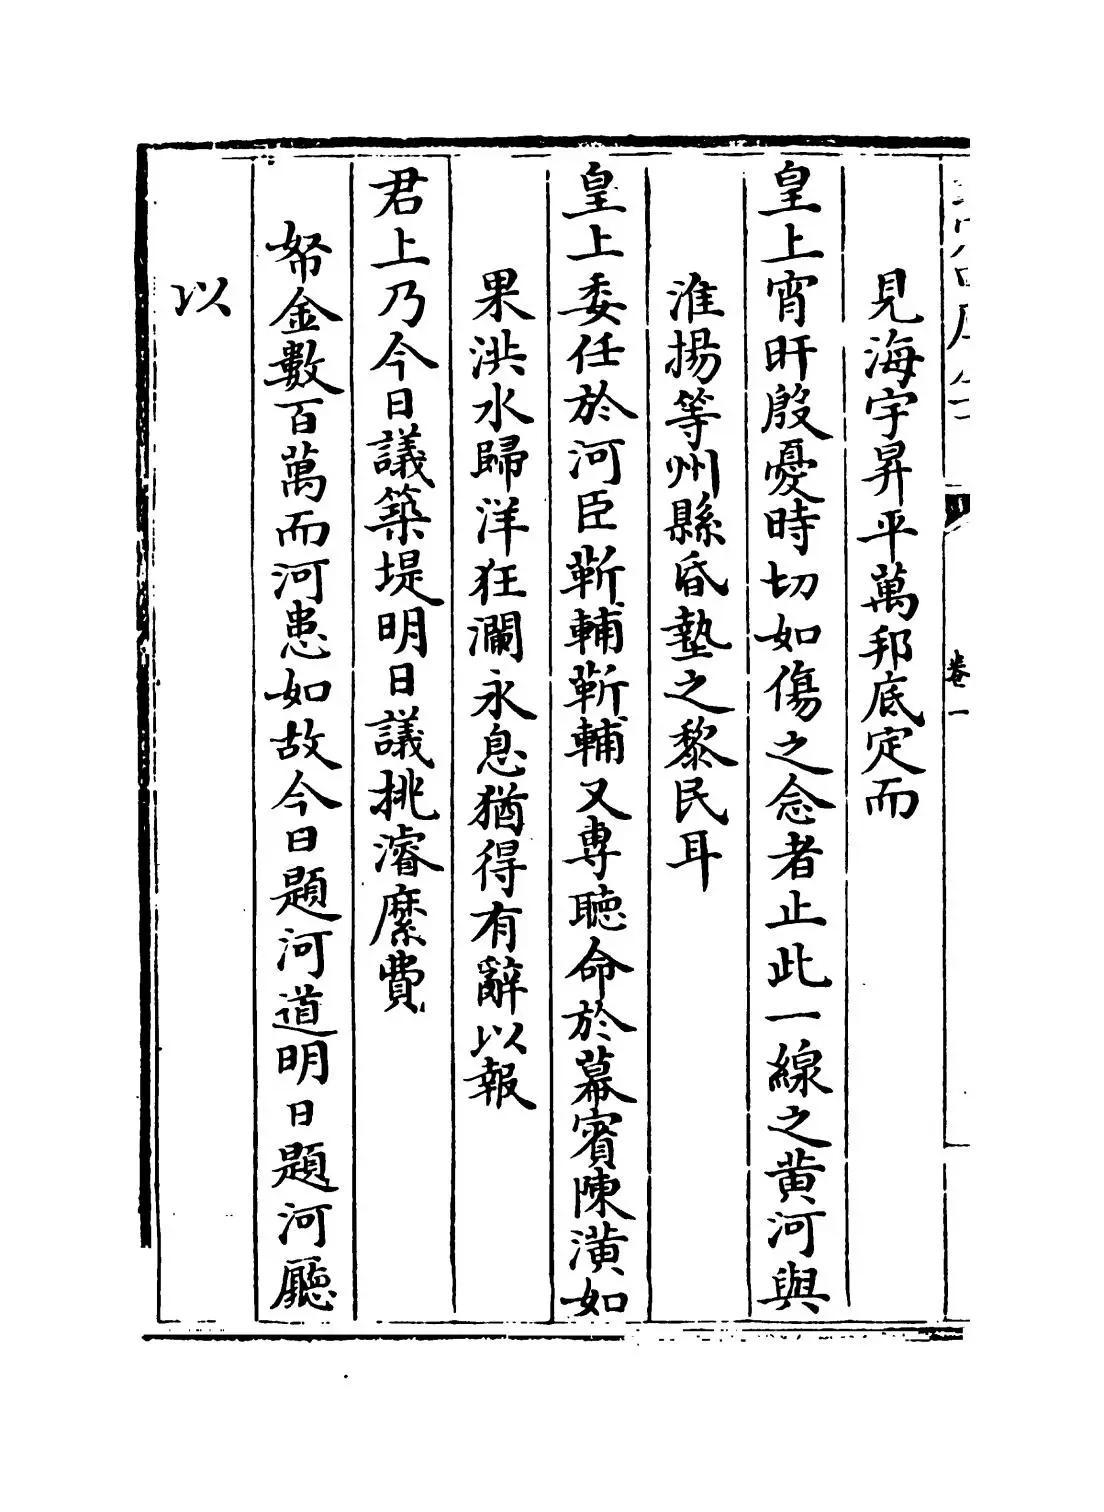 見海宇昇平萬邦底定而
皇上宵旰殷憂時切如傷之念者止此一線之黄河與
淮揚等州縣昏墊之黎民耳
皇上委任於河臣靳輔靳輔又專聽命於幕賓陳潢如
果洪水歸洋狂瀾永息猶得有辭以報
君上乃今日議築堤明日議挑濬糜費
帑金數百萬而河患如故今日題河道明日題河廳
以
卷一